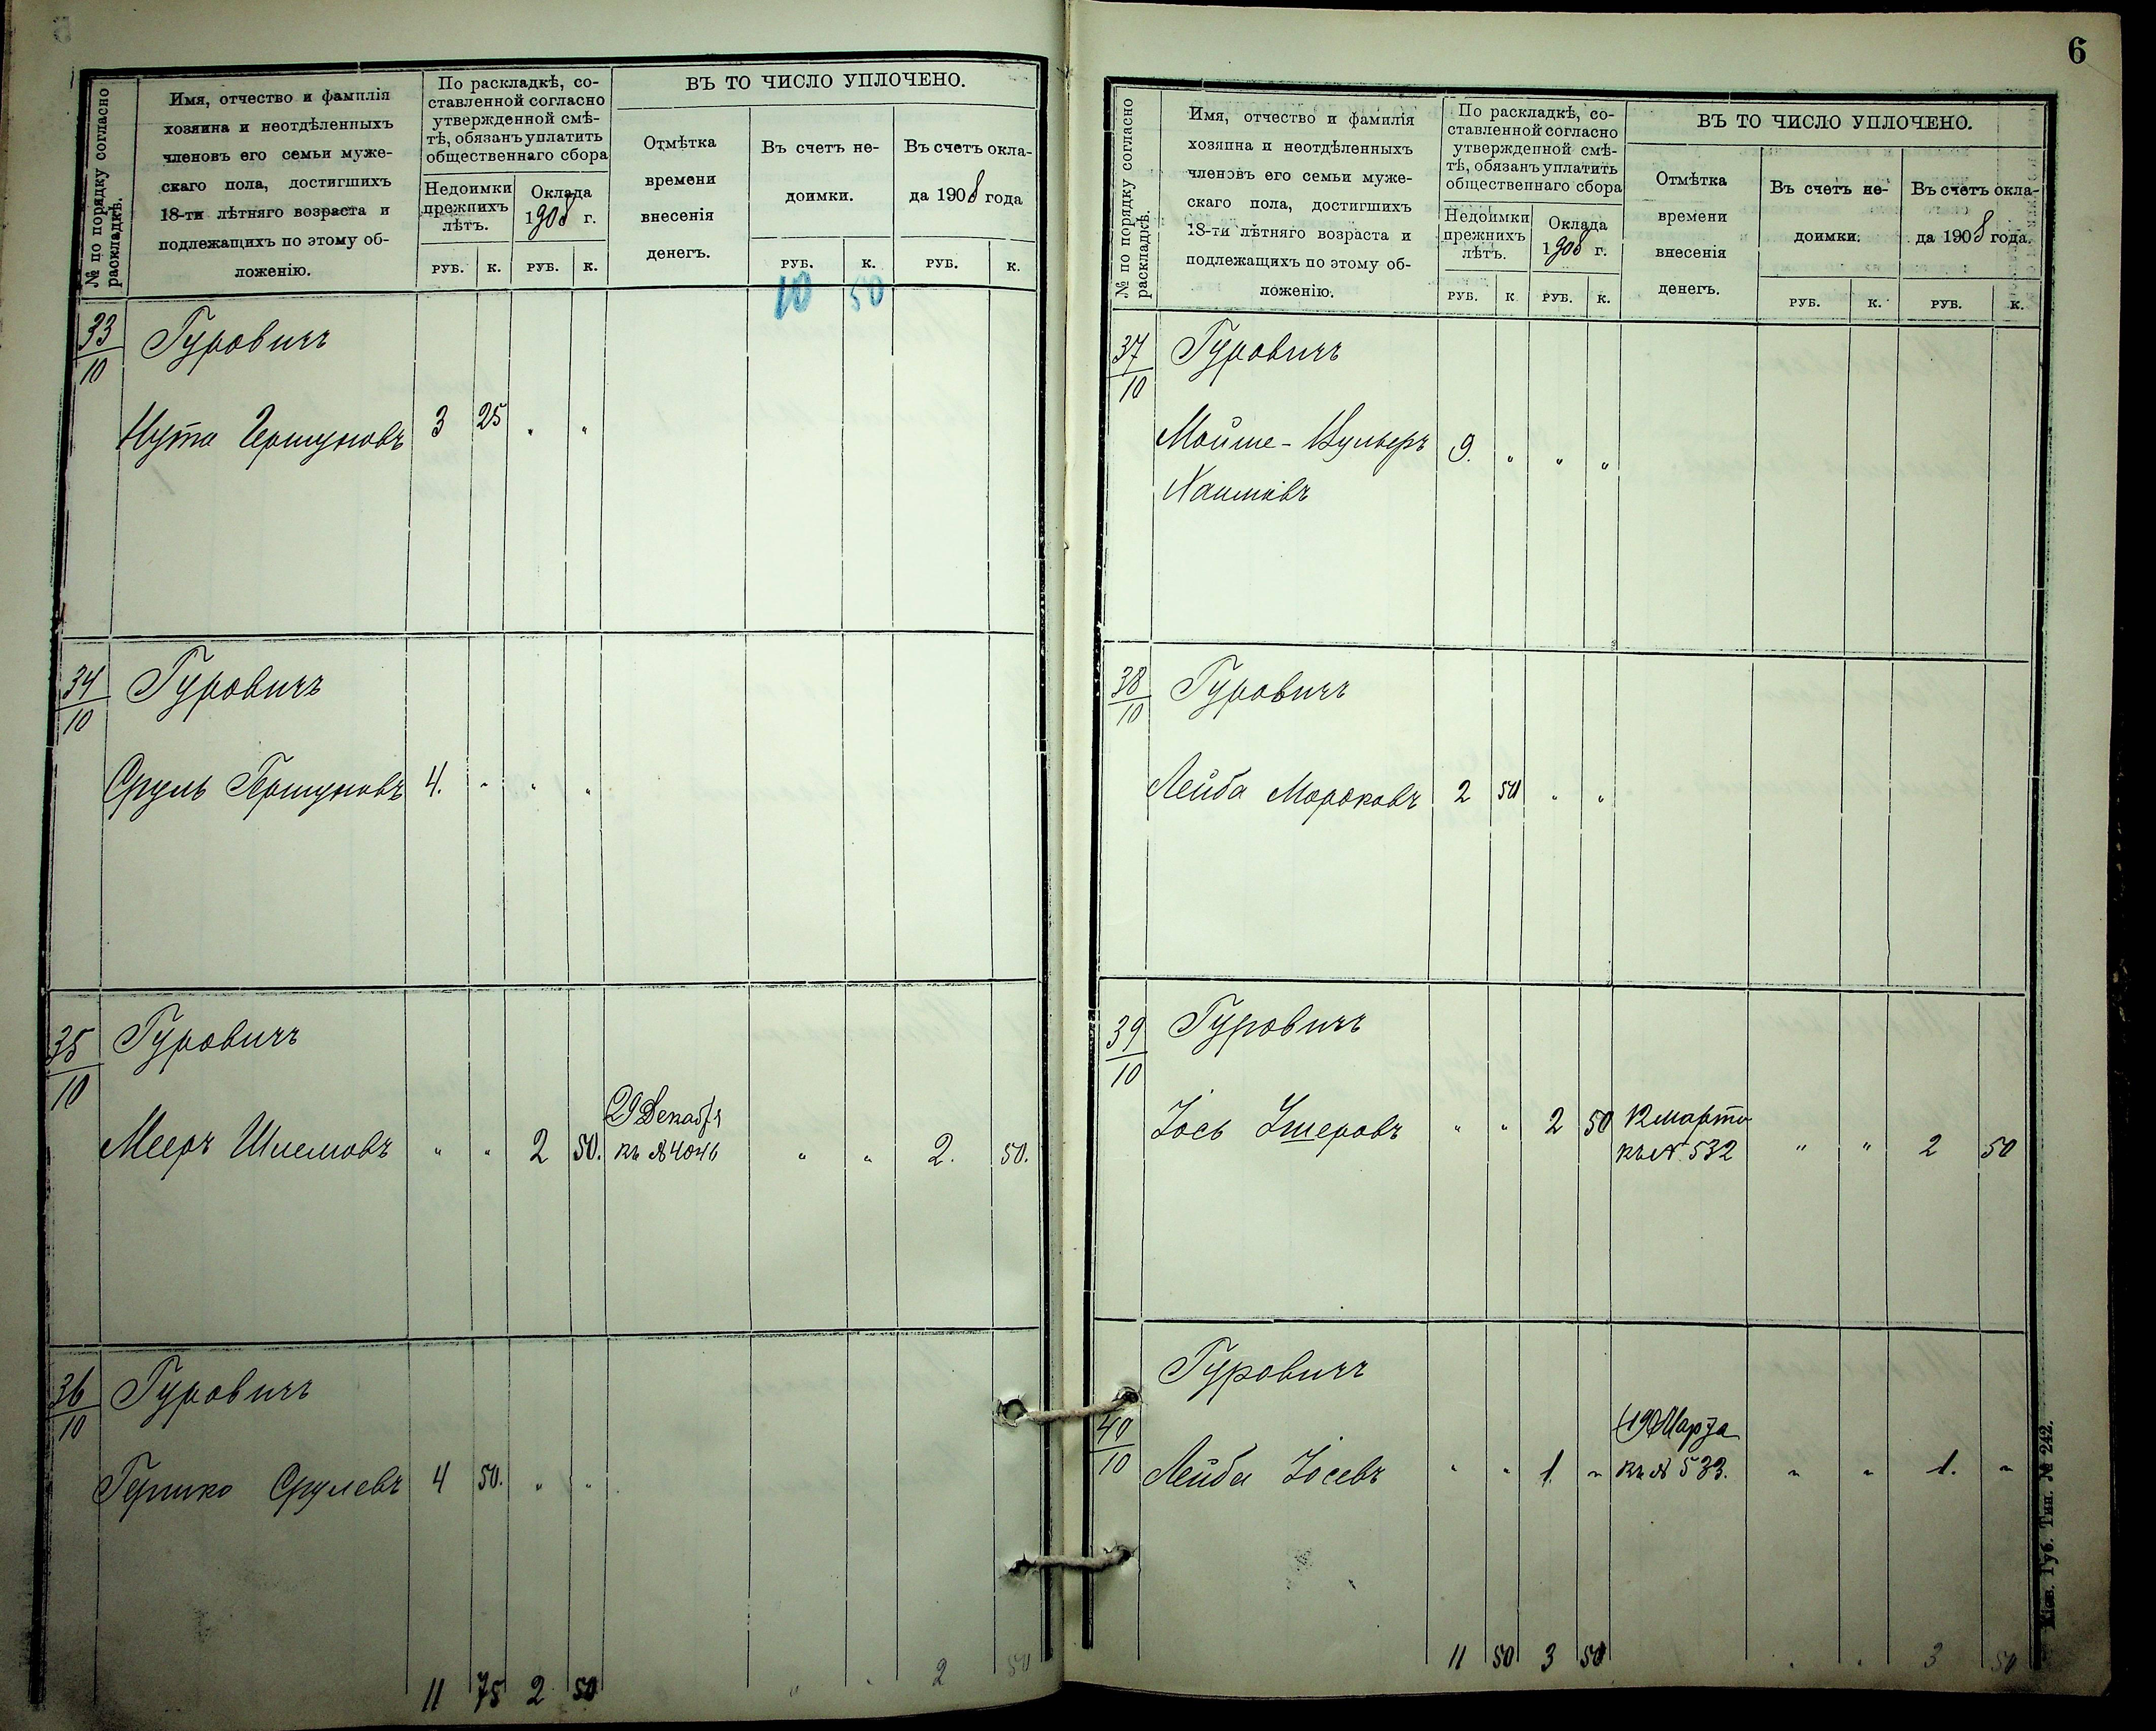 № по порядку согласно
раскладкѣ.
Имя, отчество и фамилія
хозяина и неотдѣленныхъ
членовъ его семьи муже-
скаго пола, достигшихъ
18-ти лѣтняго возраста и
подлежащихъ по этому об-
ложенію.
По раскладкѣ, со-
ставленной согласно
утвержденной смѣ-
тѣ, обязанъ уплатить
общественнаго сбора
Недоимки
прежнихъ
лѣтъ.
Оклада
1908 г.
РУБ. К. РУБ. К.
ВЪ ТО ЧИСЛО УПЛОЧЕНО.
Отмѣтка
времени
внесенія
денегъ.
Въ счетъ не-
доимки.
Въ счетъ окла-
да 1908 года
РУБ. К. РУБ. К.
10 50
33/10 Гуровичъ
Нута Гершуновъ 3 25 " "
34/10 Гуровичъ
Сруль Гершуновъ 4. " " "
35/10 Гуровичъ
29 Декабря
Мееръ Шлемовъ " " 2 50. къ № 4046 " " 2. 50.
36/10 Гуровичъ
Гершко Срулевъ 4 50. " "
11 75 2 50 " " 2 50
6
№ по порядку согласно
раскладкѣ.
Имя, отчество и фамилія
хозяина и неотдѣленныхъ
членовъ его семьи муже-
скаго пола, достигшихъ
18-ти лѣтняго возраста и
подлежащихъ по этому об-
ложенію.
По раскладкѣ, со-
ставленной согласно
утвержденной смѣ-
тѣ, обязанъ уплатить
общественнаго сбора
Недоимки
прежнихъ
лѣтъ.
Оклада
1908 г.
РУБ. К РУБ. К.
ВЪ ТО ЧИСЛО УПЛОЧЕНО.
Отмѣтка
времени
внесенія
денегъ.
Въ счетъ не-
доимки.
Въ счетъ окла-
да 1908 года.
РУБ. К. РУБ. К.
37/10 Гуровичъ
Мойше- 9. " " "
Хаимовъ
38/10 Гуровичъ
Лейба 2 50 " "
39/10 Гуровичъ
12 марта
Іось Умеровъ " " 2 50 къ № 532 " " 2 50
Гуровичъ
40/10 19 Марта
Лейба Іосевъ " " 1. " къ № 533. " " 1. "
11 50 3 50 " " 3 50
Кіев. Губ. Тип. № 242.